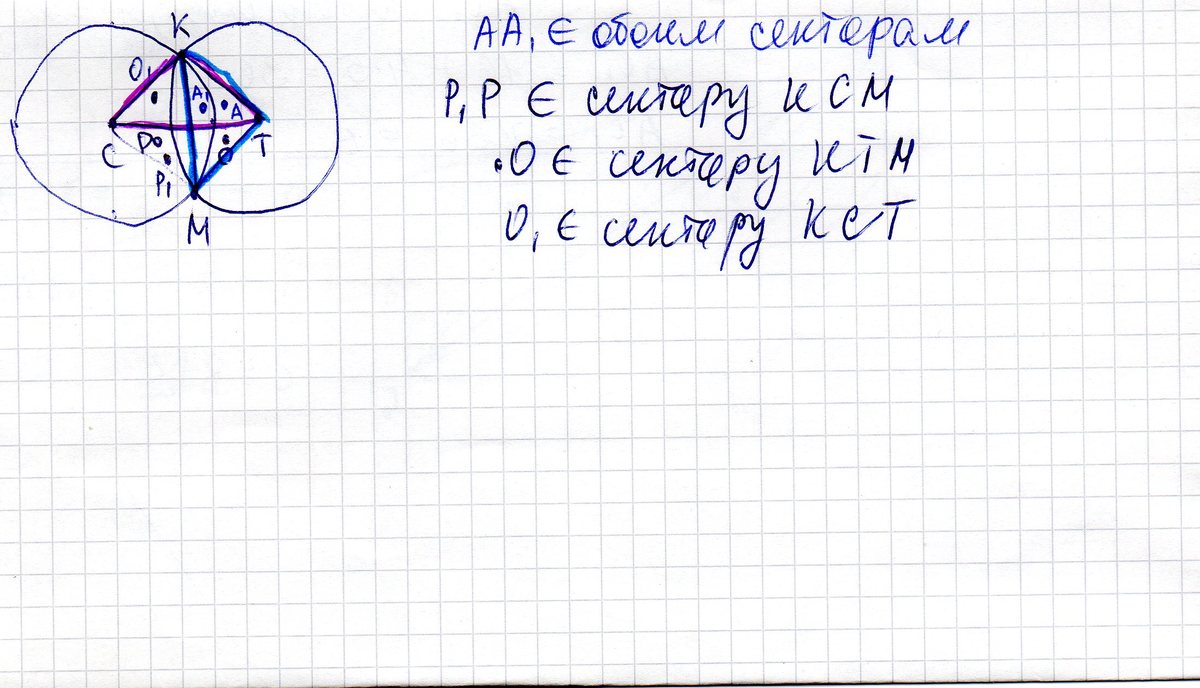 K
O₁
A₁
A
C
P
O
T
P₁
M
AA₁ ∈ обоим секторам
P₁P ∈ сектору КСМ
.О ∈ сектору КТМ
О₁ ∈ сектору КСТ